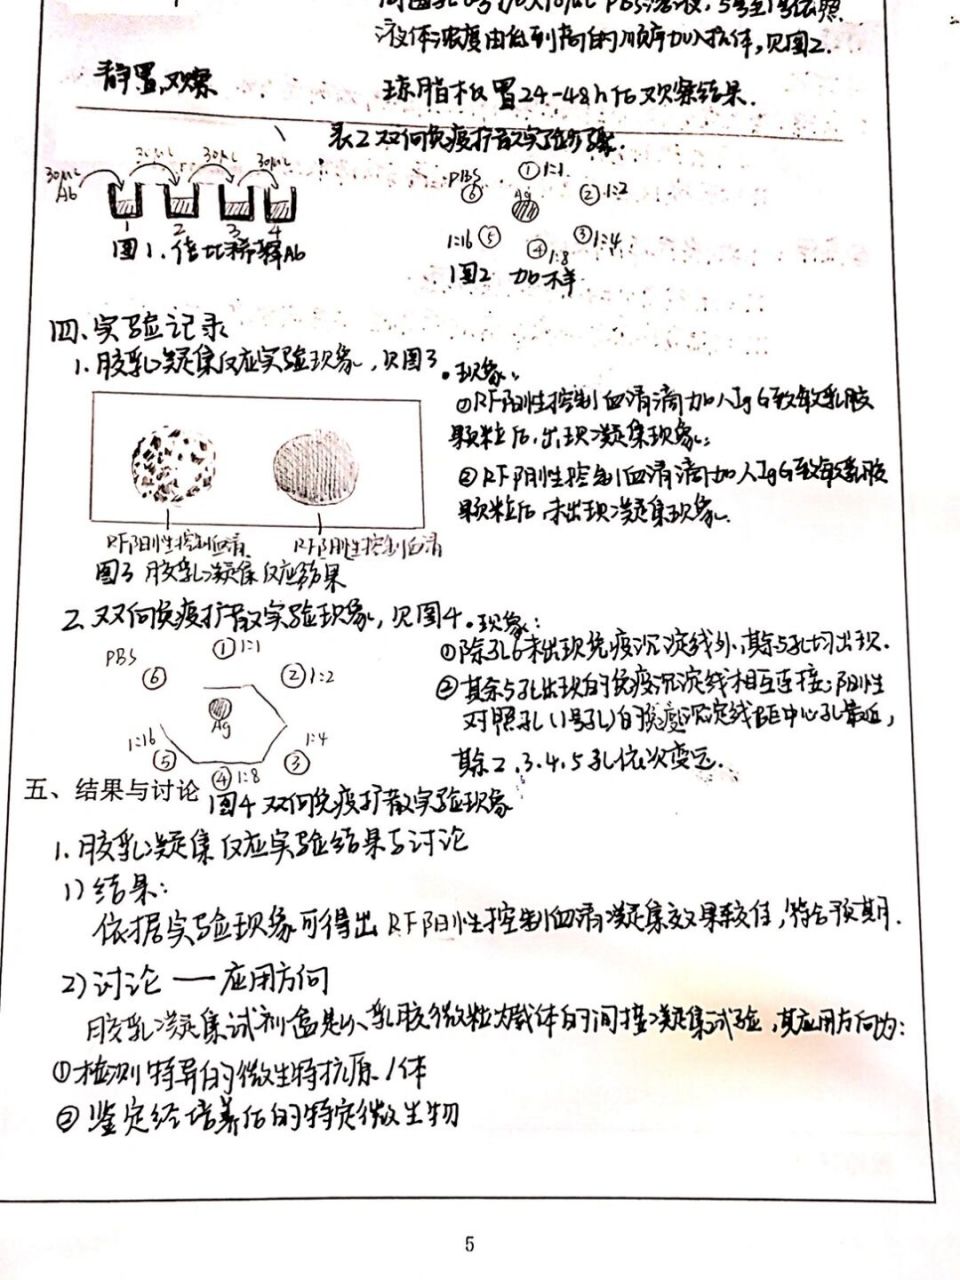 液体浓度由低到高的顺序加入抗体,见图2.
静置,观察
琼脂板置24-48h后观察结果.
表2 双向免疫扩散实验步骤.
30μL 30μL 30μL 30μL
Ab
1 2 3 4
图1.倍比稀释Ab
PBS ①1:1
⑥ Ag ②1:2
1:16 ⑤ ④1:8 ③1:4
图2 加样
四、实验记录
1.胶乳凝集反应实验现象,见图3.
RF阳性控制血清 RF阴性控制血清
图3 胶乳凝集反应结果
现象:
①RF阳性控制血清滴加入IgG致敏乳胶
颗粒后,出现凝集现象;
②RF阴性控制血清滴加入IgG致敏乳胶
颗粒后,未出现凝集现象.
2.双向免疫扩散实验现象,见图4.
PBS ①1:1
⑥ ②1:2
Ag
1:16 1:4
⑤ ④1:8 ③
图4 双向免疫扩散实验现象
现象:
①除孔6未出现免疫沉淀线外,其余5孔均出现.
②其余5孔出现的免疫沉淀线相互连接;阳性
对照孔(1号孔)的免疫沉淀线距中心孔最近,
其余2.3.4.5孔依次变远.
五、结果与讨论
1.胶乳凝集反应实验结果与讨论
1)结果:
依据实验现象可得出RF阳性控制血清凝集效果较佳,符合预期.
2)讨论——应用方向
胶乳凝集试剂盒是以乳胶微粒为载体的间接凝集试验,其应用方向为:
①检测特异的微生物抗原/体
②鉴定经培养后的特定微生物
5